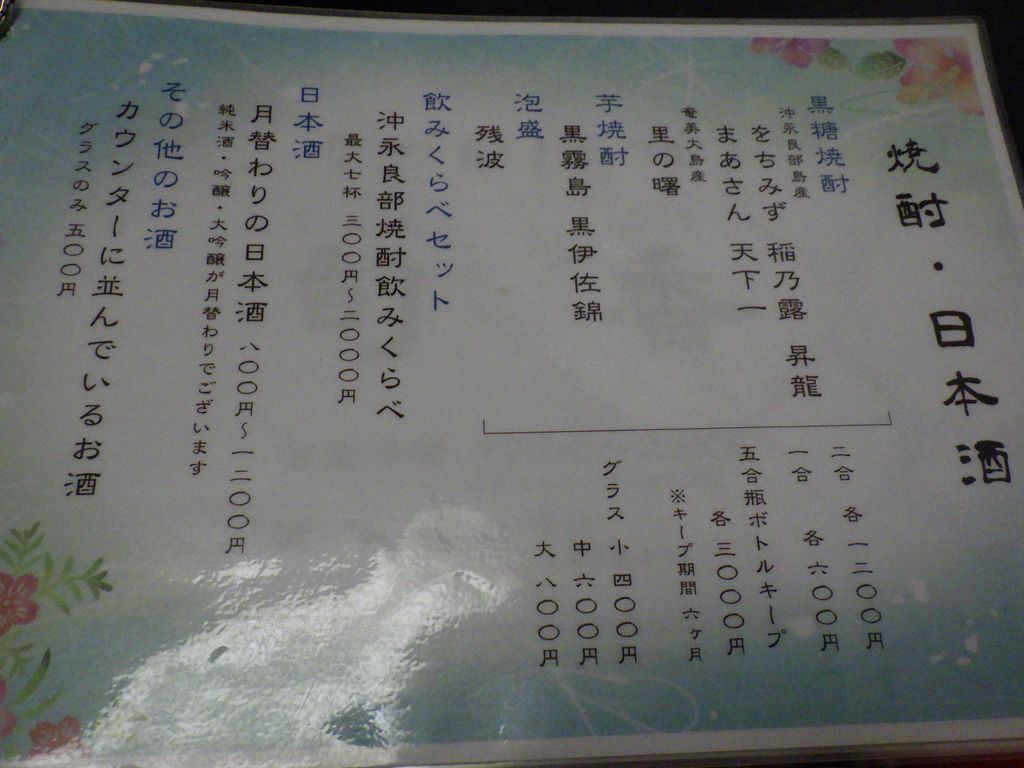 焼酎・日本酒
黒糖焼酎
沖永良部島産
をちみず 稲乃露 昇龍
まあさん 天下一
奄美大島産
里の曙
芋焼酎
黒霧島 黒伊佐錦
泡盛
残波
二合 各 一二〇〇円
一合 各 六〇〇円
五合瓶ボトルキープ
各 三〇〇〇円
※キープ期間 六ヶ月
グラス 小 四〇〇円
中 六〇〇円
大 八〇〇円
飲みくらべセット
沖永良部焼酎飲みくらべ
最大七杯 三〇〇円～二〇〇〇円
日本酒
月替わりの日本酒 八〇〇円～一二〇〇円
純米酒・吟醸・大吟醸が月替わりでございます
その他のお酒
カウンターに並んでいるお酒
グラスのみ 五〇〇円